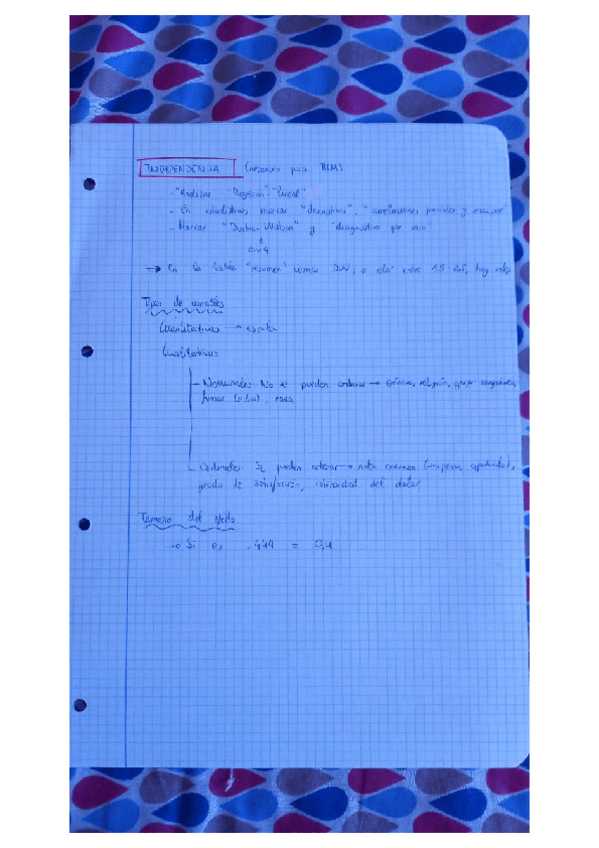 INDEPENDENCIA
- "Analizar" "Regresión" "Lineal"
- En estadísticos, marcar "descriptivos", "correlaciones parciales y
- Marcar "Durbin-Watson" y "diagnóstico por
→ En la tabla "resumen" vemos DW, si está entre 1.5 - 2.5, hay
Tipos de variables
Cuantitativas → escala
Cualitativas
- Nominales: No se pueden ordenar → género, religión, grupo sanguíneo,
raza
- Ordinales: Se pueden ordenar → nota examen (suspenso, aprobado),
grado de satisfacción, intensidad del dolor
Tamaño del efecto
→ Si es .449 = 0,4